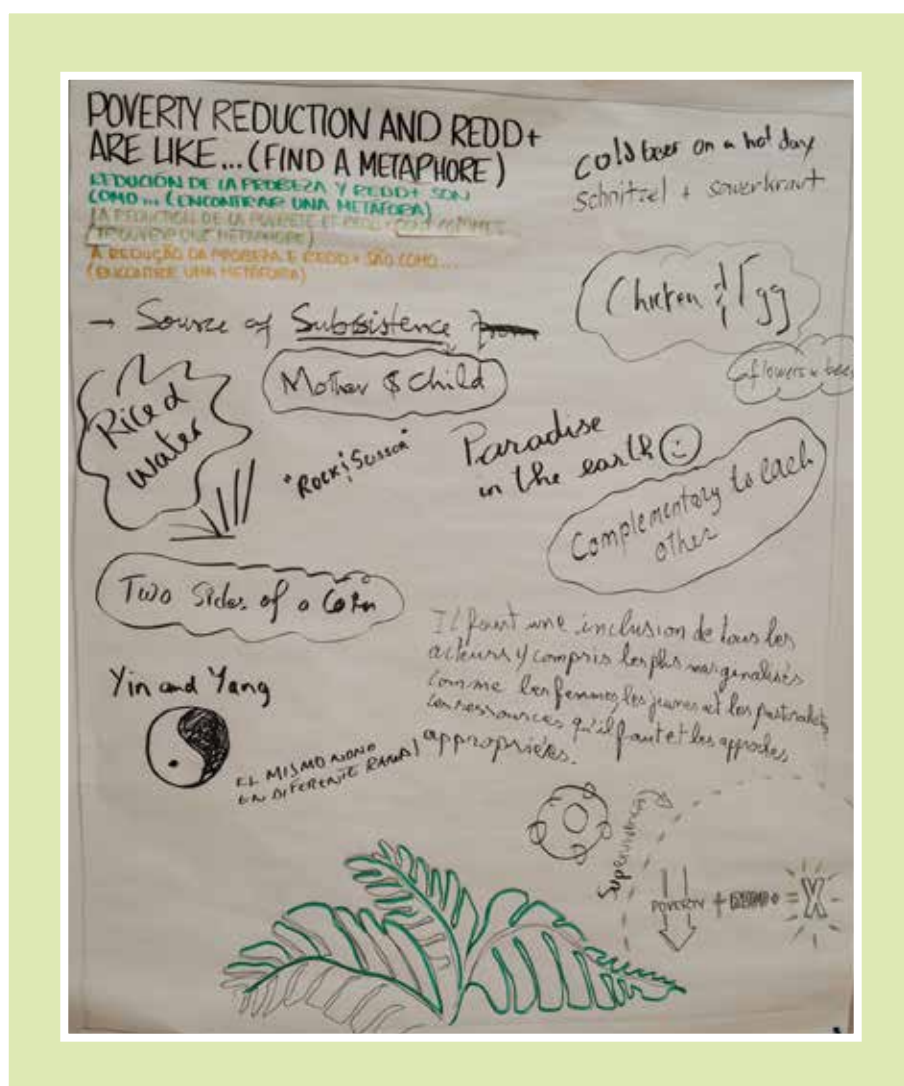 POVERTY REDUCTION AND REDD+
ARE LIKE... (FIND A METAPHORE)
REDUCIÓN DE LA PROBEZA Y REDD+ SON
COMO... (ENCONTRAR UNA METAFORA)
LA REDUCTION DE LA PAUVRETE ET REDD+ SONT COMME...
(TROUVER UNE METAPHORE)
A REDUÇÃO DA PROBEZA E REDD+ SÃO COMO...
(ENCONTRE UNA METAFORA)
cold beer on a hot day
Schnitzel + sauerkraut
Chicken & Egg
flowers & bees
→ Source of Subsistence
Mother & Child
Rice &
water
"Rock & Scissor"
Paradise
in the earth
Complementary to each
other
Two Sides of a Coin
Il faut une inclusion de tous les
acteurs y compris les plus marginalisés
comme les femmes les jeunes et les
les ressources qu'il faut et les
appropriées.
Yin and Yang
EL MISMO MONO
EN DIFERENTE RAMA
Supervivencia
POVERTY + REDD+ = X